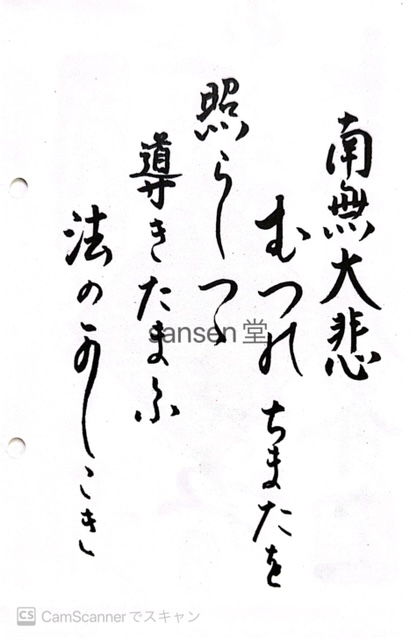 南無大悲
むつのちまたを
照らしつゝ
導きたまふ
法のかしこき
sansen堂
CS CamScannerでスキャン